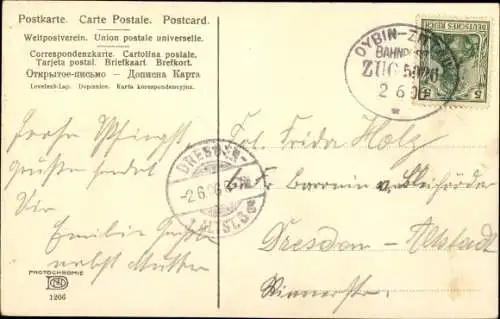 Postkarte. Carte Postale. Postcard.
Weltpostverein. Union postale universelle.
Correspondenzkarte. Cartolina postale.
Tarjeta postal. Briefkaart. Brefkort.
Открытое-письмо — Дописна Карта
Levelezö-Lap. Dopisnice. Karta korespondencyjna.
OYBIN-
BAHNPOST
ZUG
2 6 06
DEUTSCHES REICH
5 5
DRESDEN-
-2.6.06
ALTST.
Frohe Pfingst
Grüße sendet
Dir
Emilie
nebst Mutter
Frl. Frida Holz
Baronin v.
Dresden-Altstadt
Wienerstr.
PHOTOCHROMIE
1266